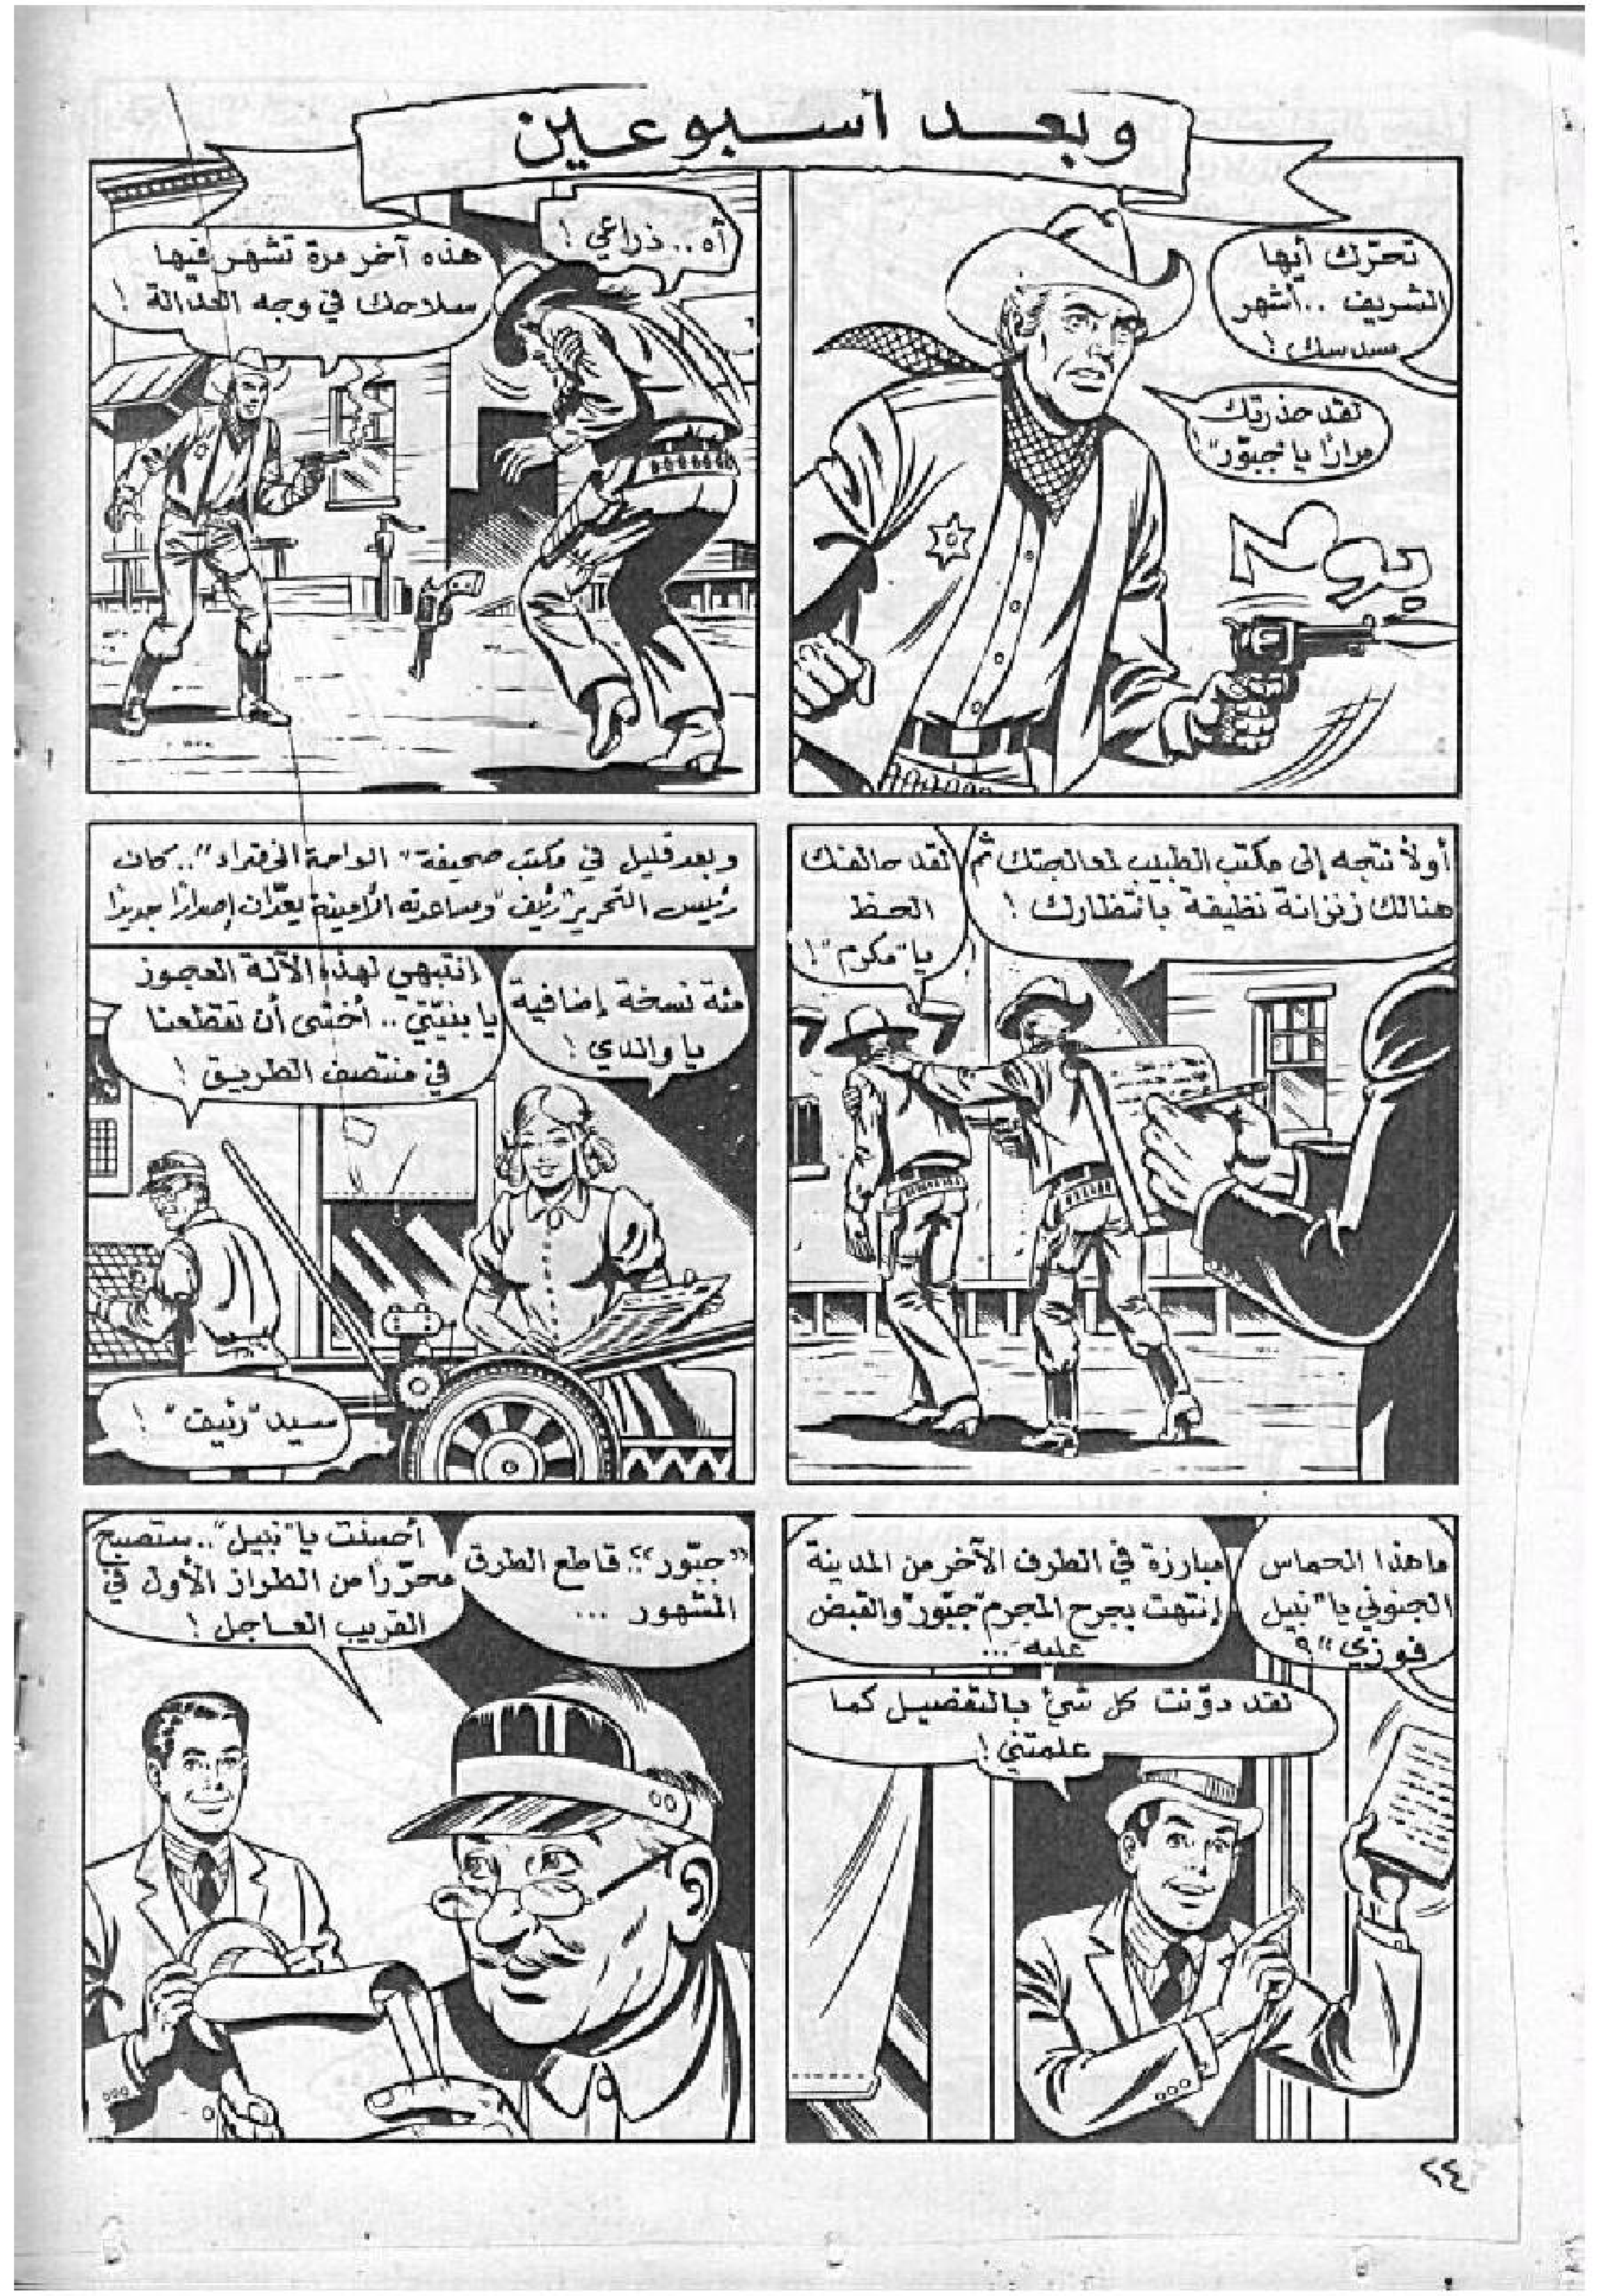 وبعد أسبوعين
تحرّك أيها
الشريف .. أشهر
سدسك!
لقد حذرتك
مرارًا يا "جبّور"!
أه .. ذراعي!
هذه آخر مرة تشهر فيها
سلاحك في وجه العدالة!
أولاً نتجه إلى مكتب الطبيب لمعالجتك ثم
هنالك زنزانة نظيفة بانتظارك!
لقد حالفك
الحظ
يا "مكرم"!
وبعد قليل في مكتب صحيفة "الواحة الخضراء" .. كان
رئيس التحرير "رئيف" ومساعدته الأمينة يعدّان إصدارًا جديدًا
مئة نسخة إضافية
يا والدي!
إنتبهي لهذه الآلة العجوز
يا بنيّتي .. أخشى أن تقطعنا
في منتصف الطريق!
سيد "رئيف"!
ما هذا الحماس
الجنوني يا "نبيل
فوزي"؟
مبارزة في الطرف الآخر من المدينة
إنتهت بجرح المجرم "جبّور" والقبض
عليه ...
لقد دوّنت كل شيء بالتفصيل كما
علمتني!
"جبّور"!! قاطع الطرق
المشهور ...
أحسنت يا "نبيل" .. ستصبح
محرّرًا من الطراز الأول في
القريب العاجل!
٢٤